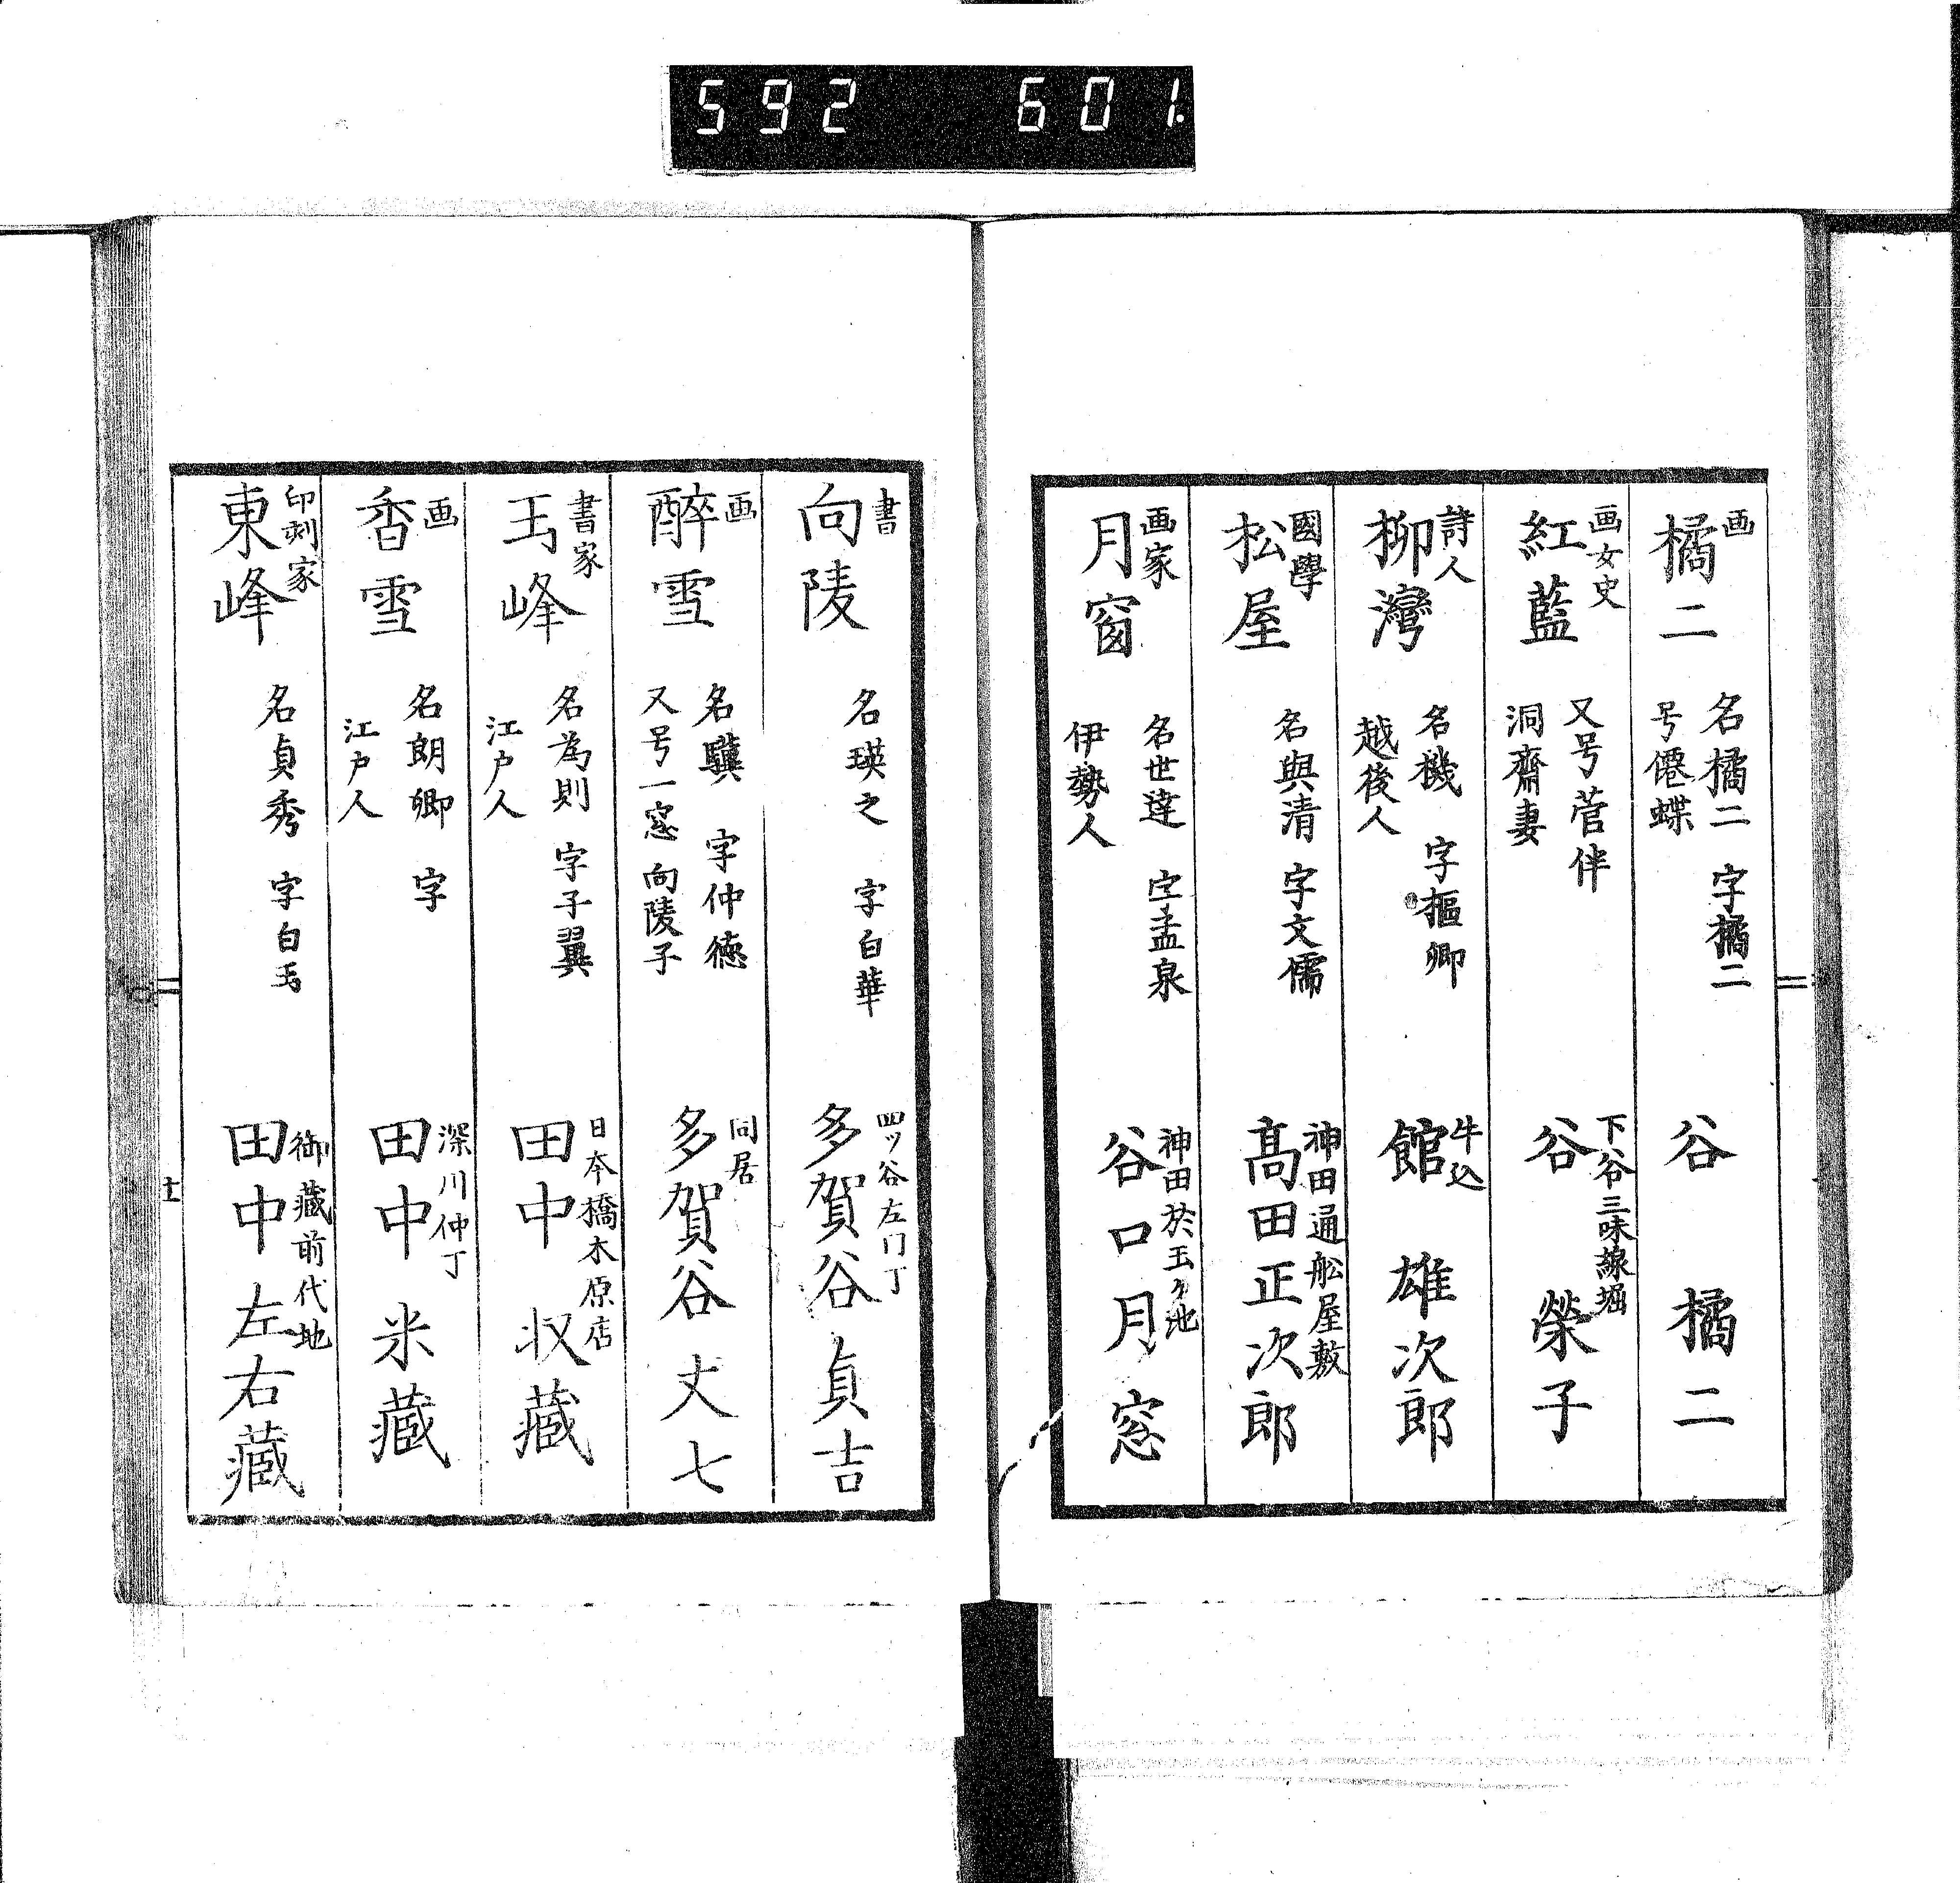 592 601.
画
橘二
名橘二 字橘二
号僊蝶
谷 橘二
画女史
紅藍
又号菅伴
洞齋妻
下谷三味線堀
谷 榮子
詩人
柳灣
名機 字樞卿
越後人
牛込
館 雄次郎
國學
松屋
名與清 字文儒
神田通舩屋敷
髙田正次郎
画家
月窗
名世達 字孟泉
伊勢人
神田於玉ケ池
谷口月窓
書
向陵
名瑛之 字白華
四ツ谷左门丁
多賀谷貞吉
画
醉雪
名驥 字仲德
又号一窓 向陵子
同居
多賀谷丈七
書家
玉峰
名為則 字子翼
江戸人
日本橋木原店
田中 収藏
画
香雪
名朗卿 字
江戸人
深川仲丁
田中 米藏
印刻家
東峰
名貞秀 字白玉
御藏前代地
田中左右藏
十一